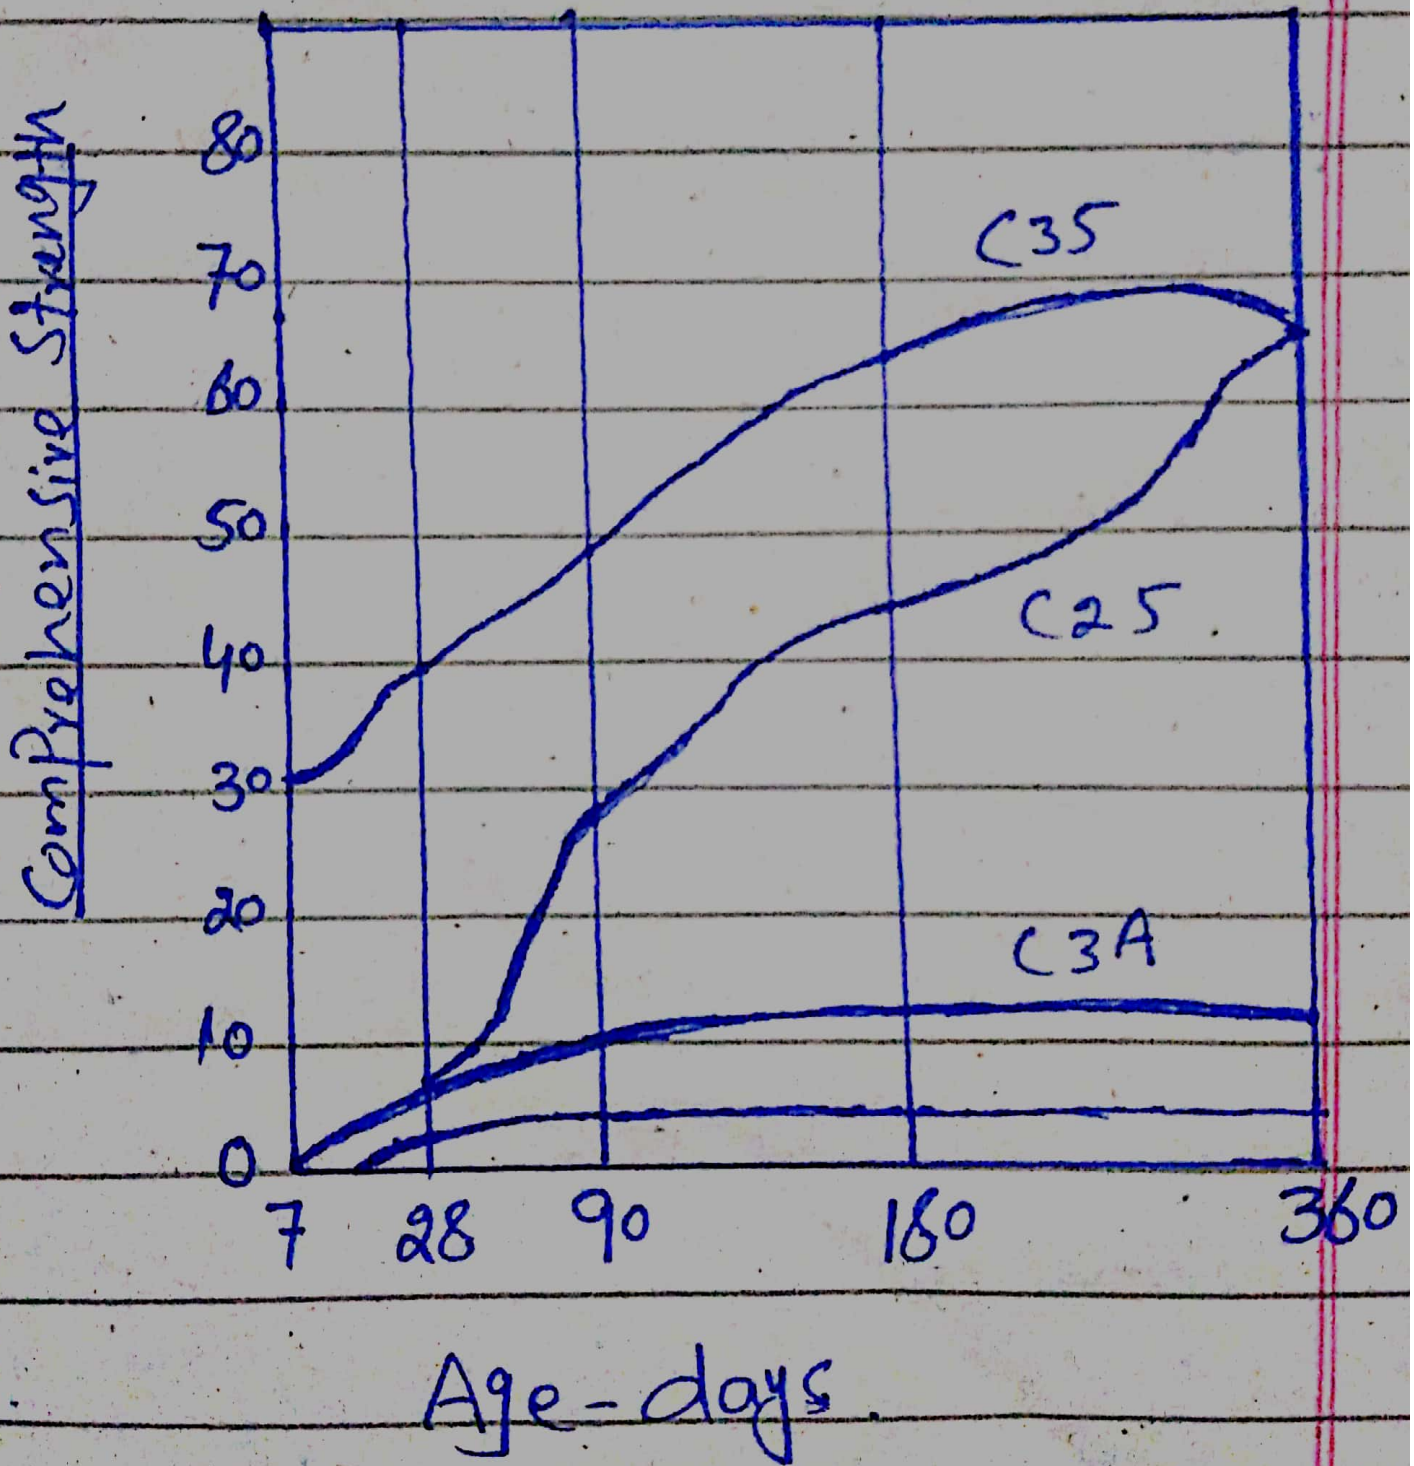 Comprehensive Strength
80
70
60
50
40
30
20
10
0
C3S
C2S
C3A
7 28 90 180 360
Age-days.